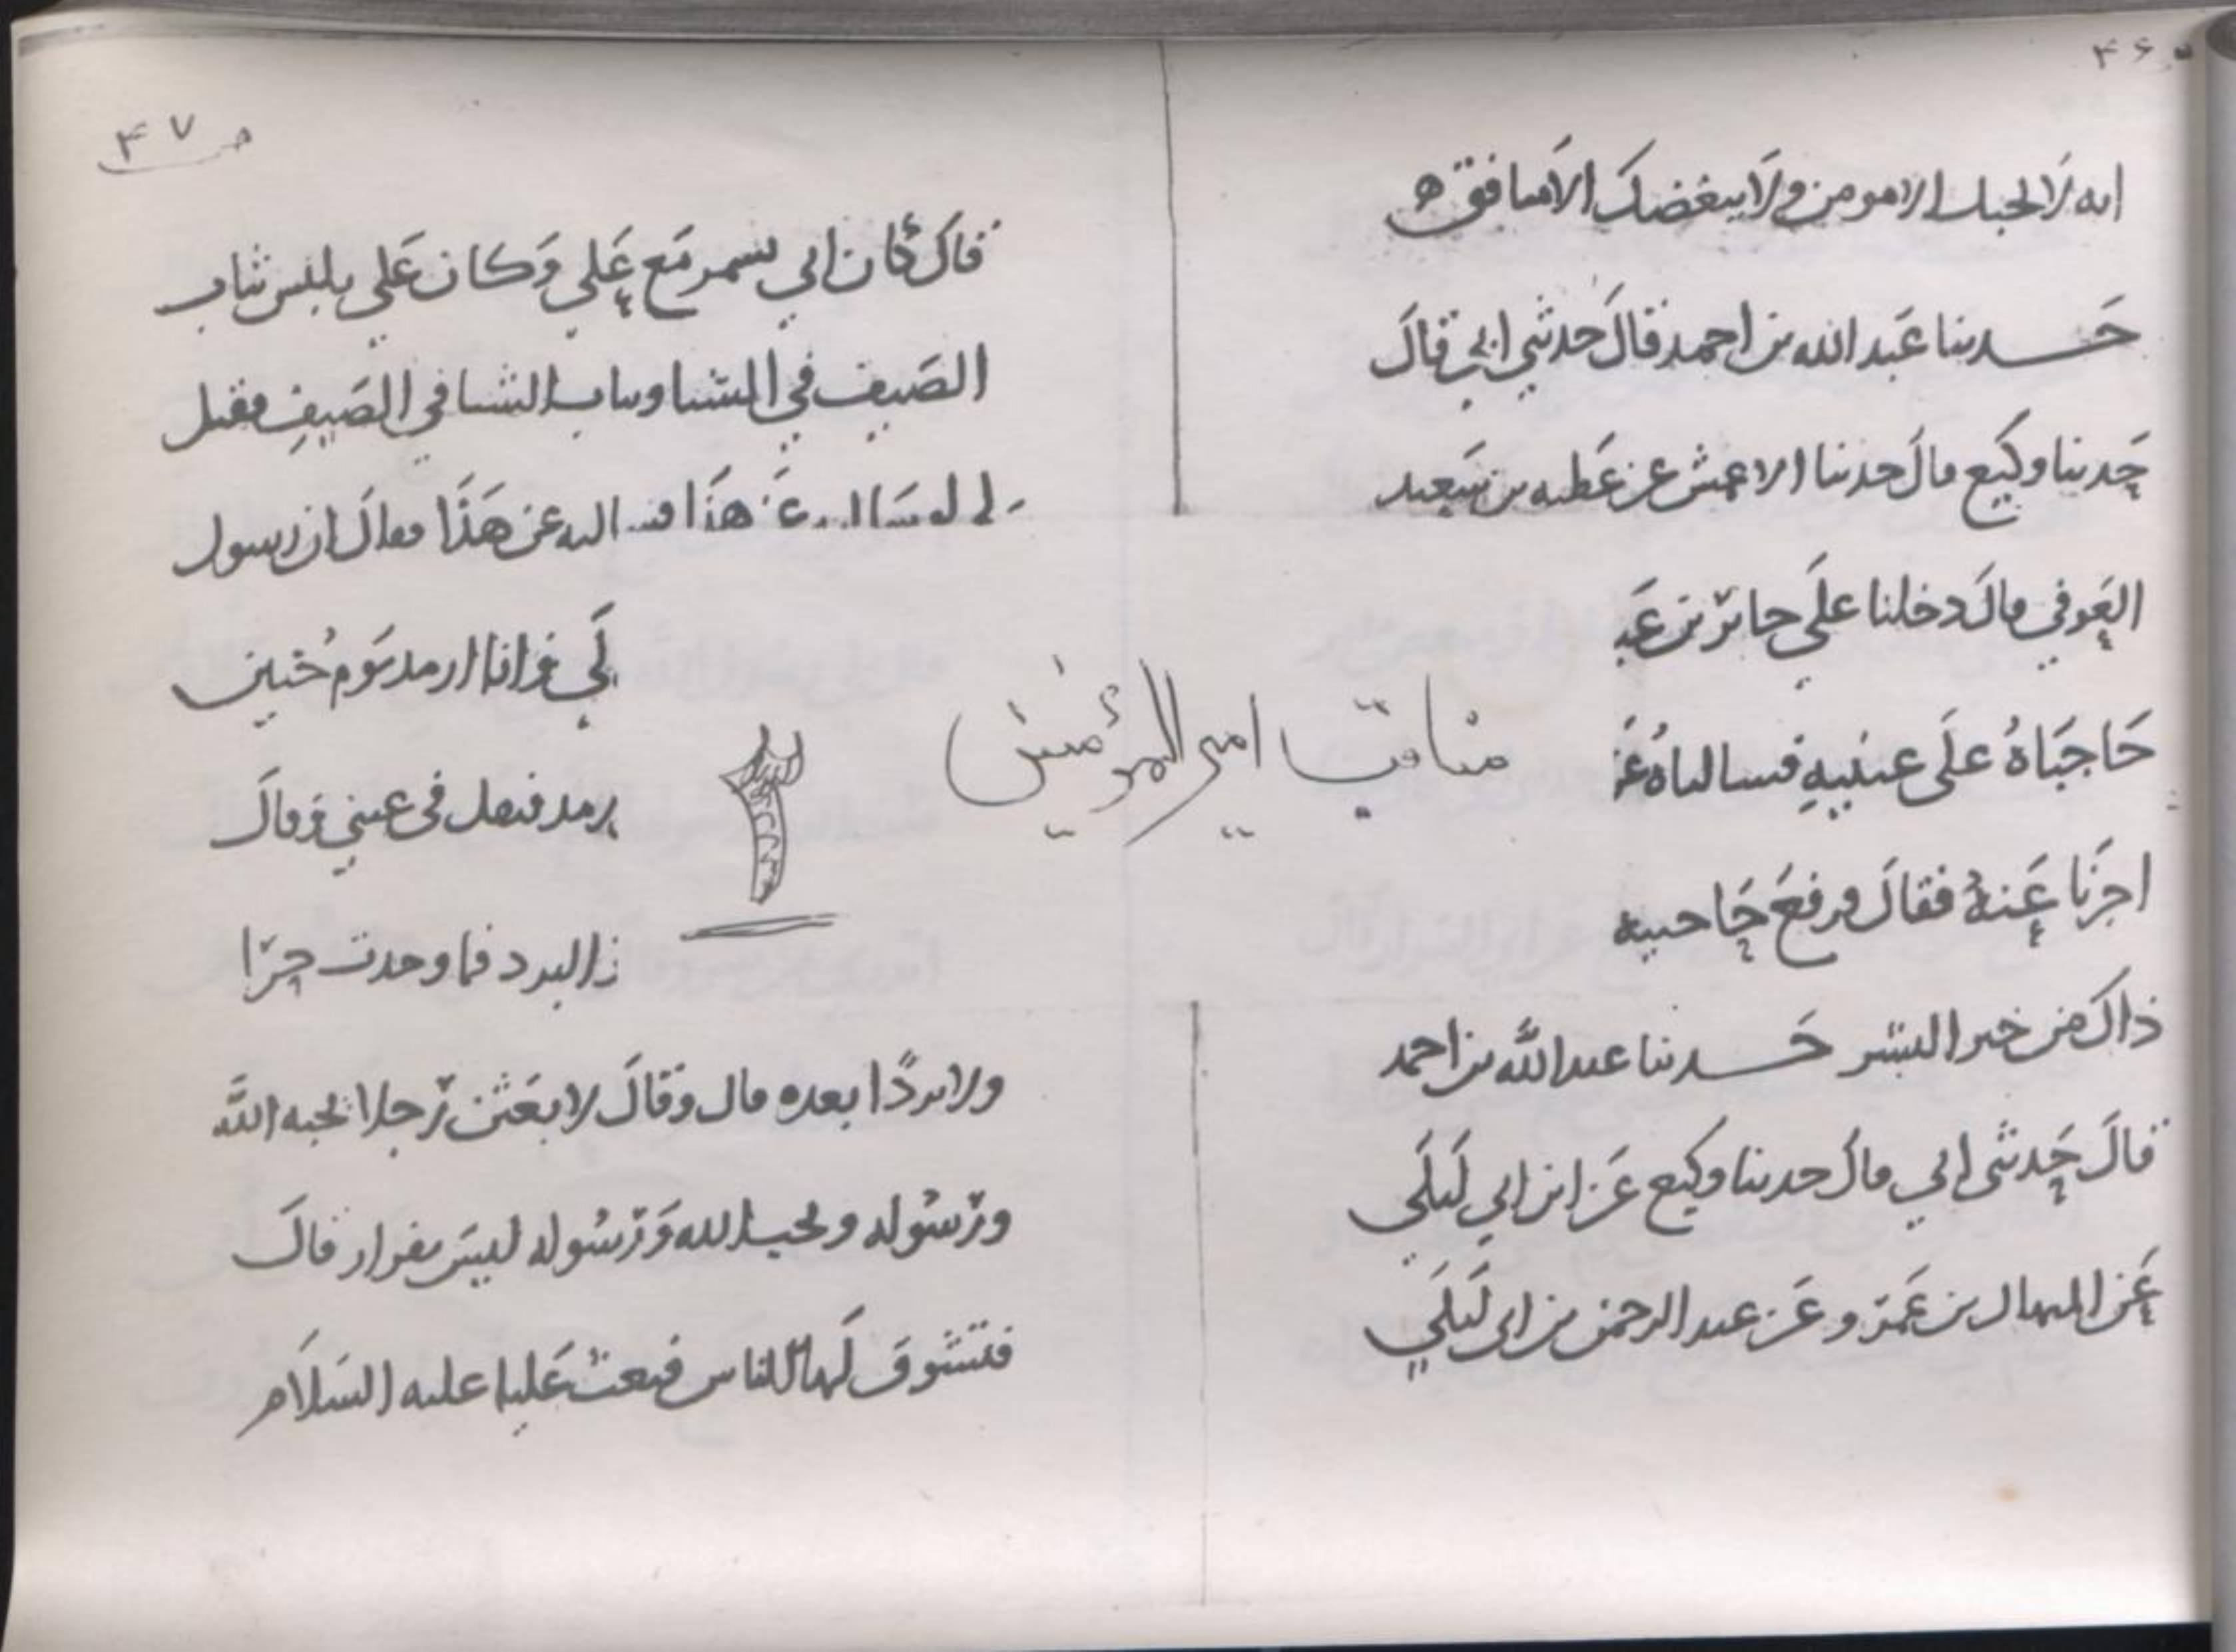 ۴۶
انه لا يحبك الا مومن ولا يبغضك الا منافق ه
حدثنا عبد الله بن احمد قال حدثني ابي قال
حدثنا وكيع قال حدثنا الاعمش عن عطيه بن سعيد
العوفي قال دخلنا على جابر بن عبد
حاجباه على عينيه فسالناه عن
اخبرنا عنه فقال ورفع حاجبيه
ذاك من خير البشر حدثنا عبد الله بن احمد
قال حدثني ابي قال حدثنا وكيع عن ابن ابي ليلى
عن المنهال بن عمرو عن عبد الرحمن بن ابي ليلى
مناقب امير المؤمنين
۲
ص ۴۷
قال كان ابي يسمر مع علي وكان علي يلبس ثياب
الصيف في الشتا وثياب الشتا في الصيف فقيل
له لو سالته عن هذا فساله عن هذا فقال ان رسول
الي وانا ارمد يوم خيبر
رمد فتفل في عيني وقال
البرد فما وجدت حرا
ولا بردا بعده قال وقال لابعثن رجلا يحبه الله
ورسوله ويحب الله ورسوله ليس بفرار قال
فتشوف لها الناس فبعث عليا عليه السلام